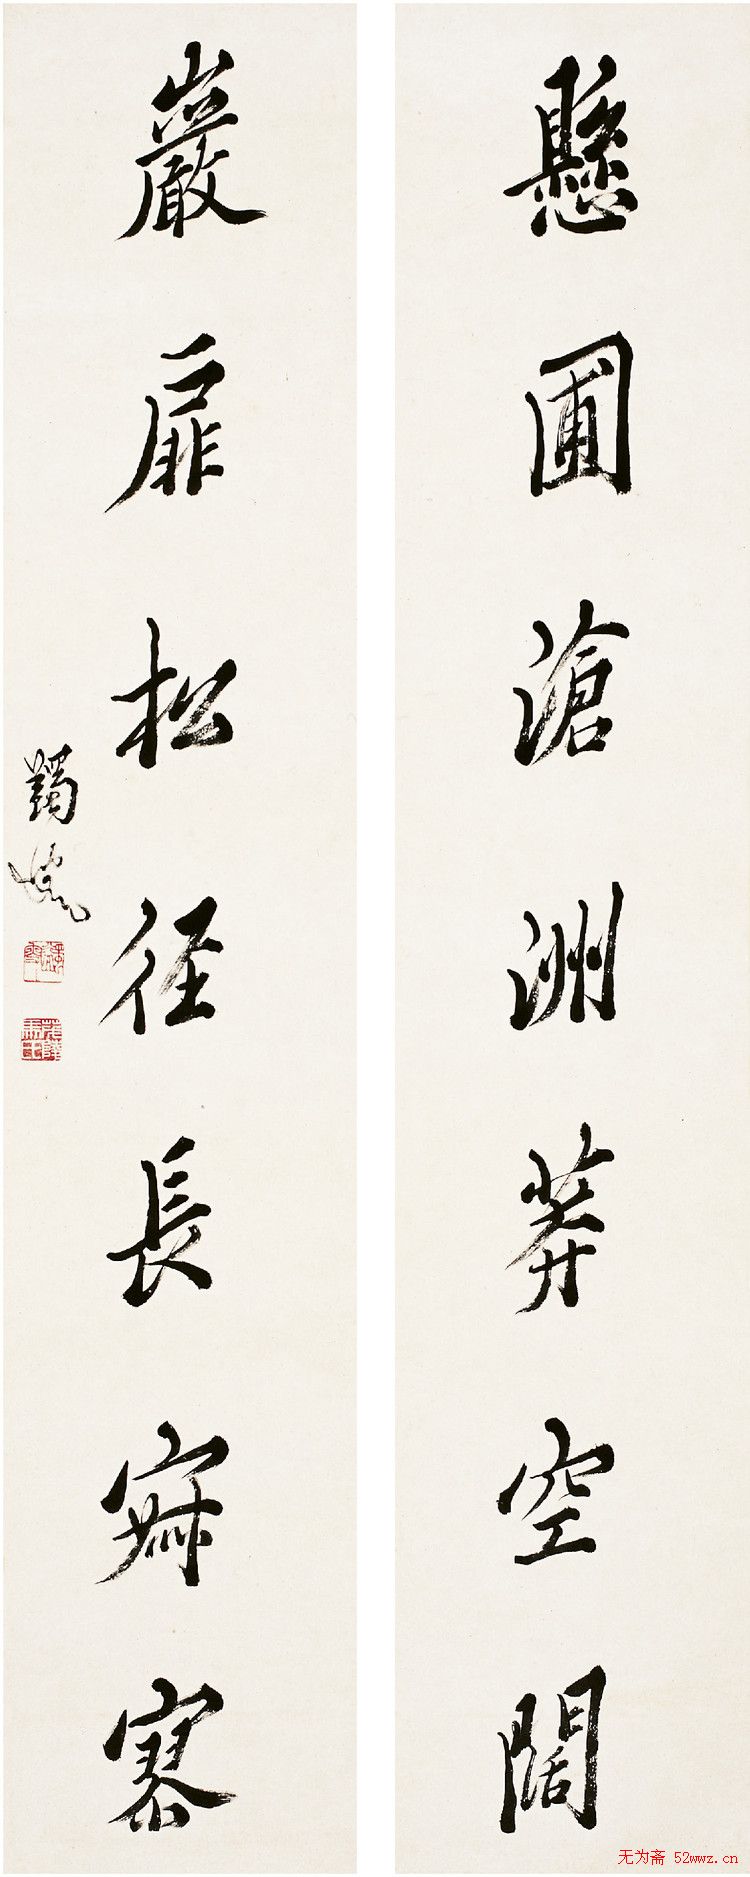 懸圃滄洲莽空闊
巖扉松径長寂寥
蠲叟
无为斋 52wwz.cn